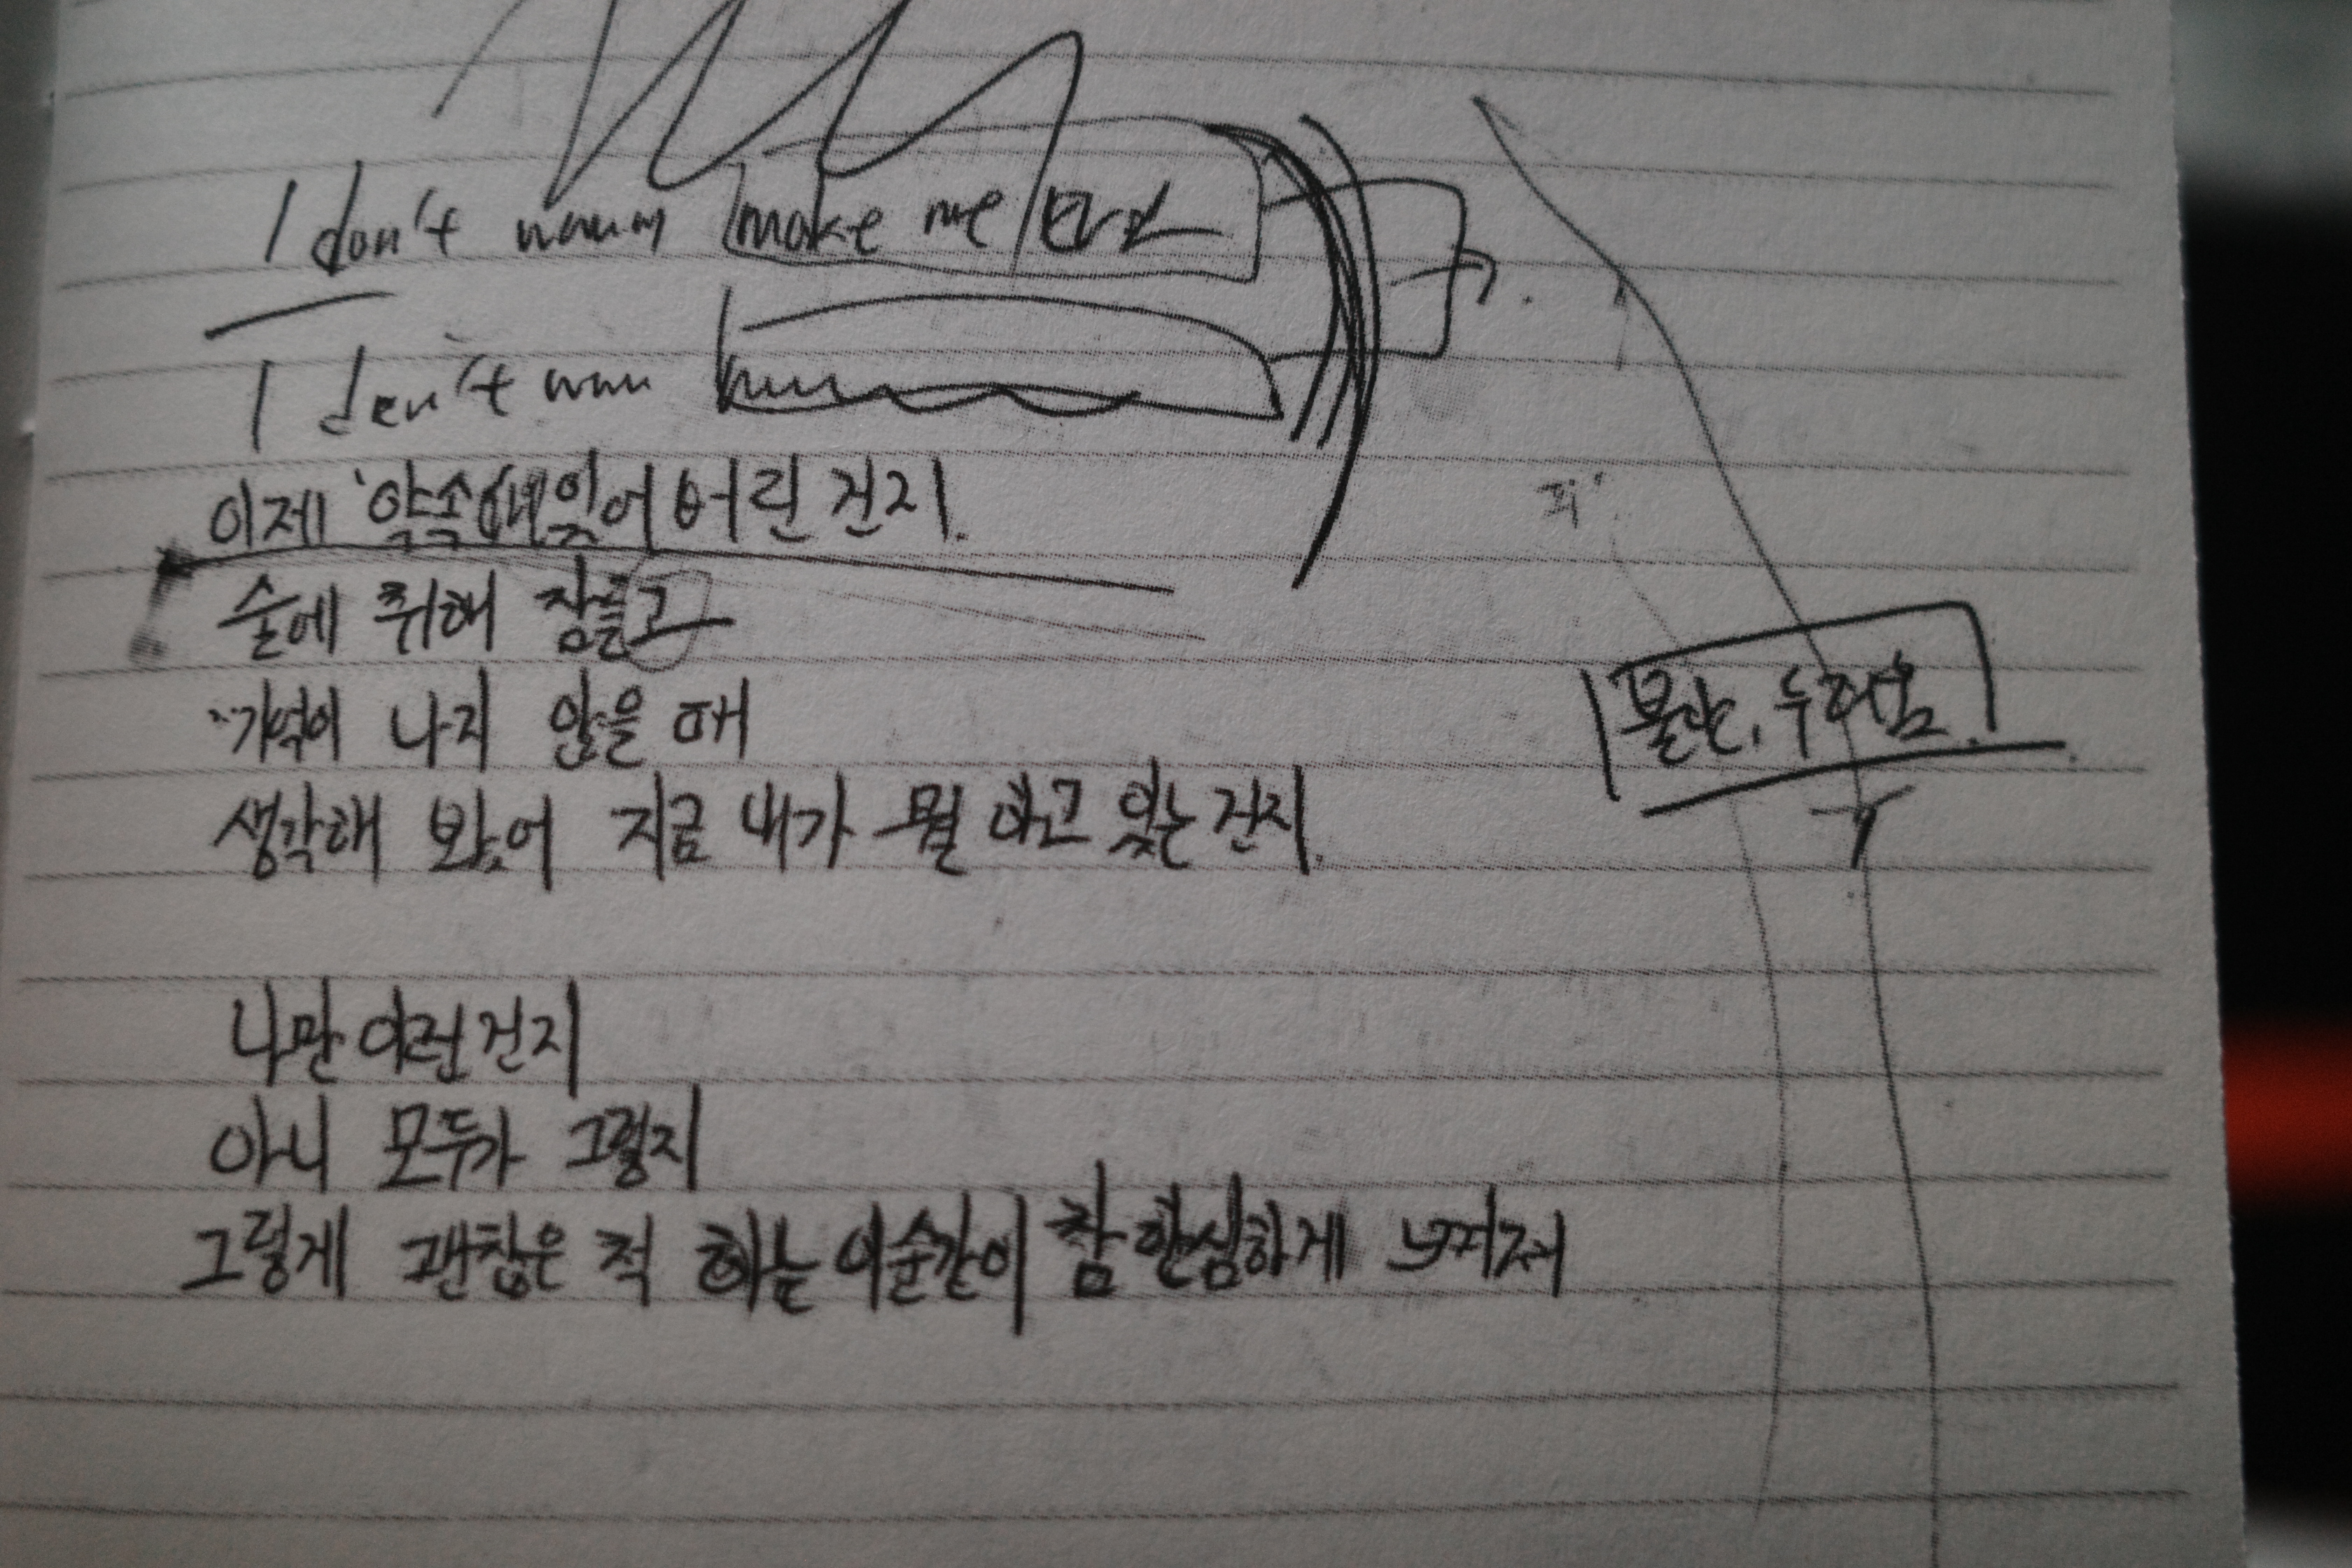 I don't make me
I don't
이제 약속에 잊어버린 건지.
술에 취해 잠들고
기억이 나지 않을 때
불안, 두려움.
생각해 봤어 지금 내가 뭘 하고 있는 건지.
나만 이런건지
아니 모두가 그렇지
그렇게 괜찮은 척 하는 이순간이 참 한심하게 느껴져